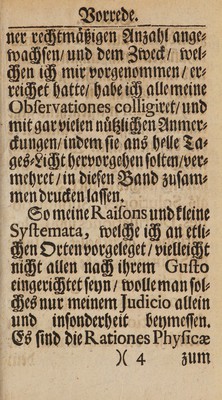 Vorrede.
ner rechtmäßigen Anzahl ange-
wachsen/ und dem Zweck/ wel-
chen ich mir vorgenommen/ er-
reichet hatte/ habe ich alle meine
Observationes colligiret/ und
mit gar vielen nützlichen Anmer-
ckungen/ indem sie ans helle Ta-
ges-Licht hervorgehen solten/ ver-
mehret/ in diesen Band zusam-
men drucken lassen.
So meine Raisons und kleine
Systemata, welche ich an etli-
chen Orten vorgeleget/ vielleicht
nicht allen nach ihrem Gusto
eingerichtet seyn/ wolle man sol-
ches nur meinem Judicio allein
und insonderheit beymessen.
Es sind die Rationes Physicæ
)( 4 zum